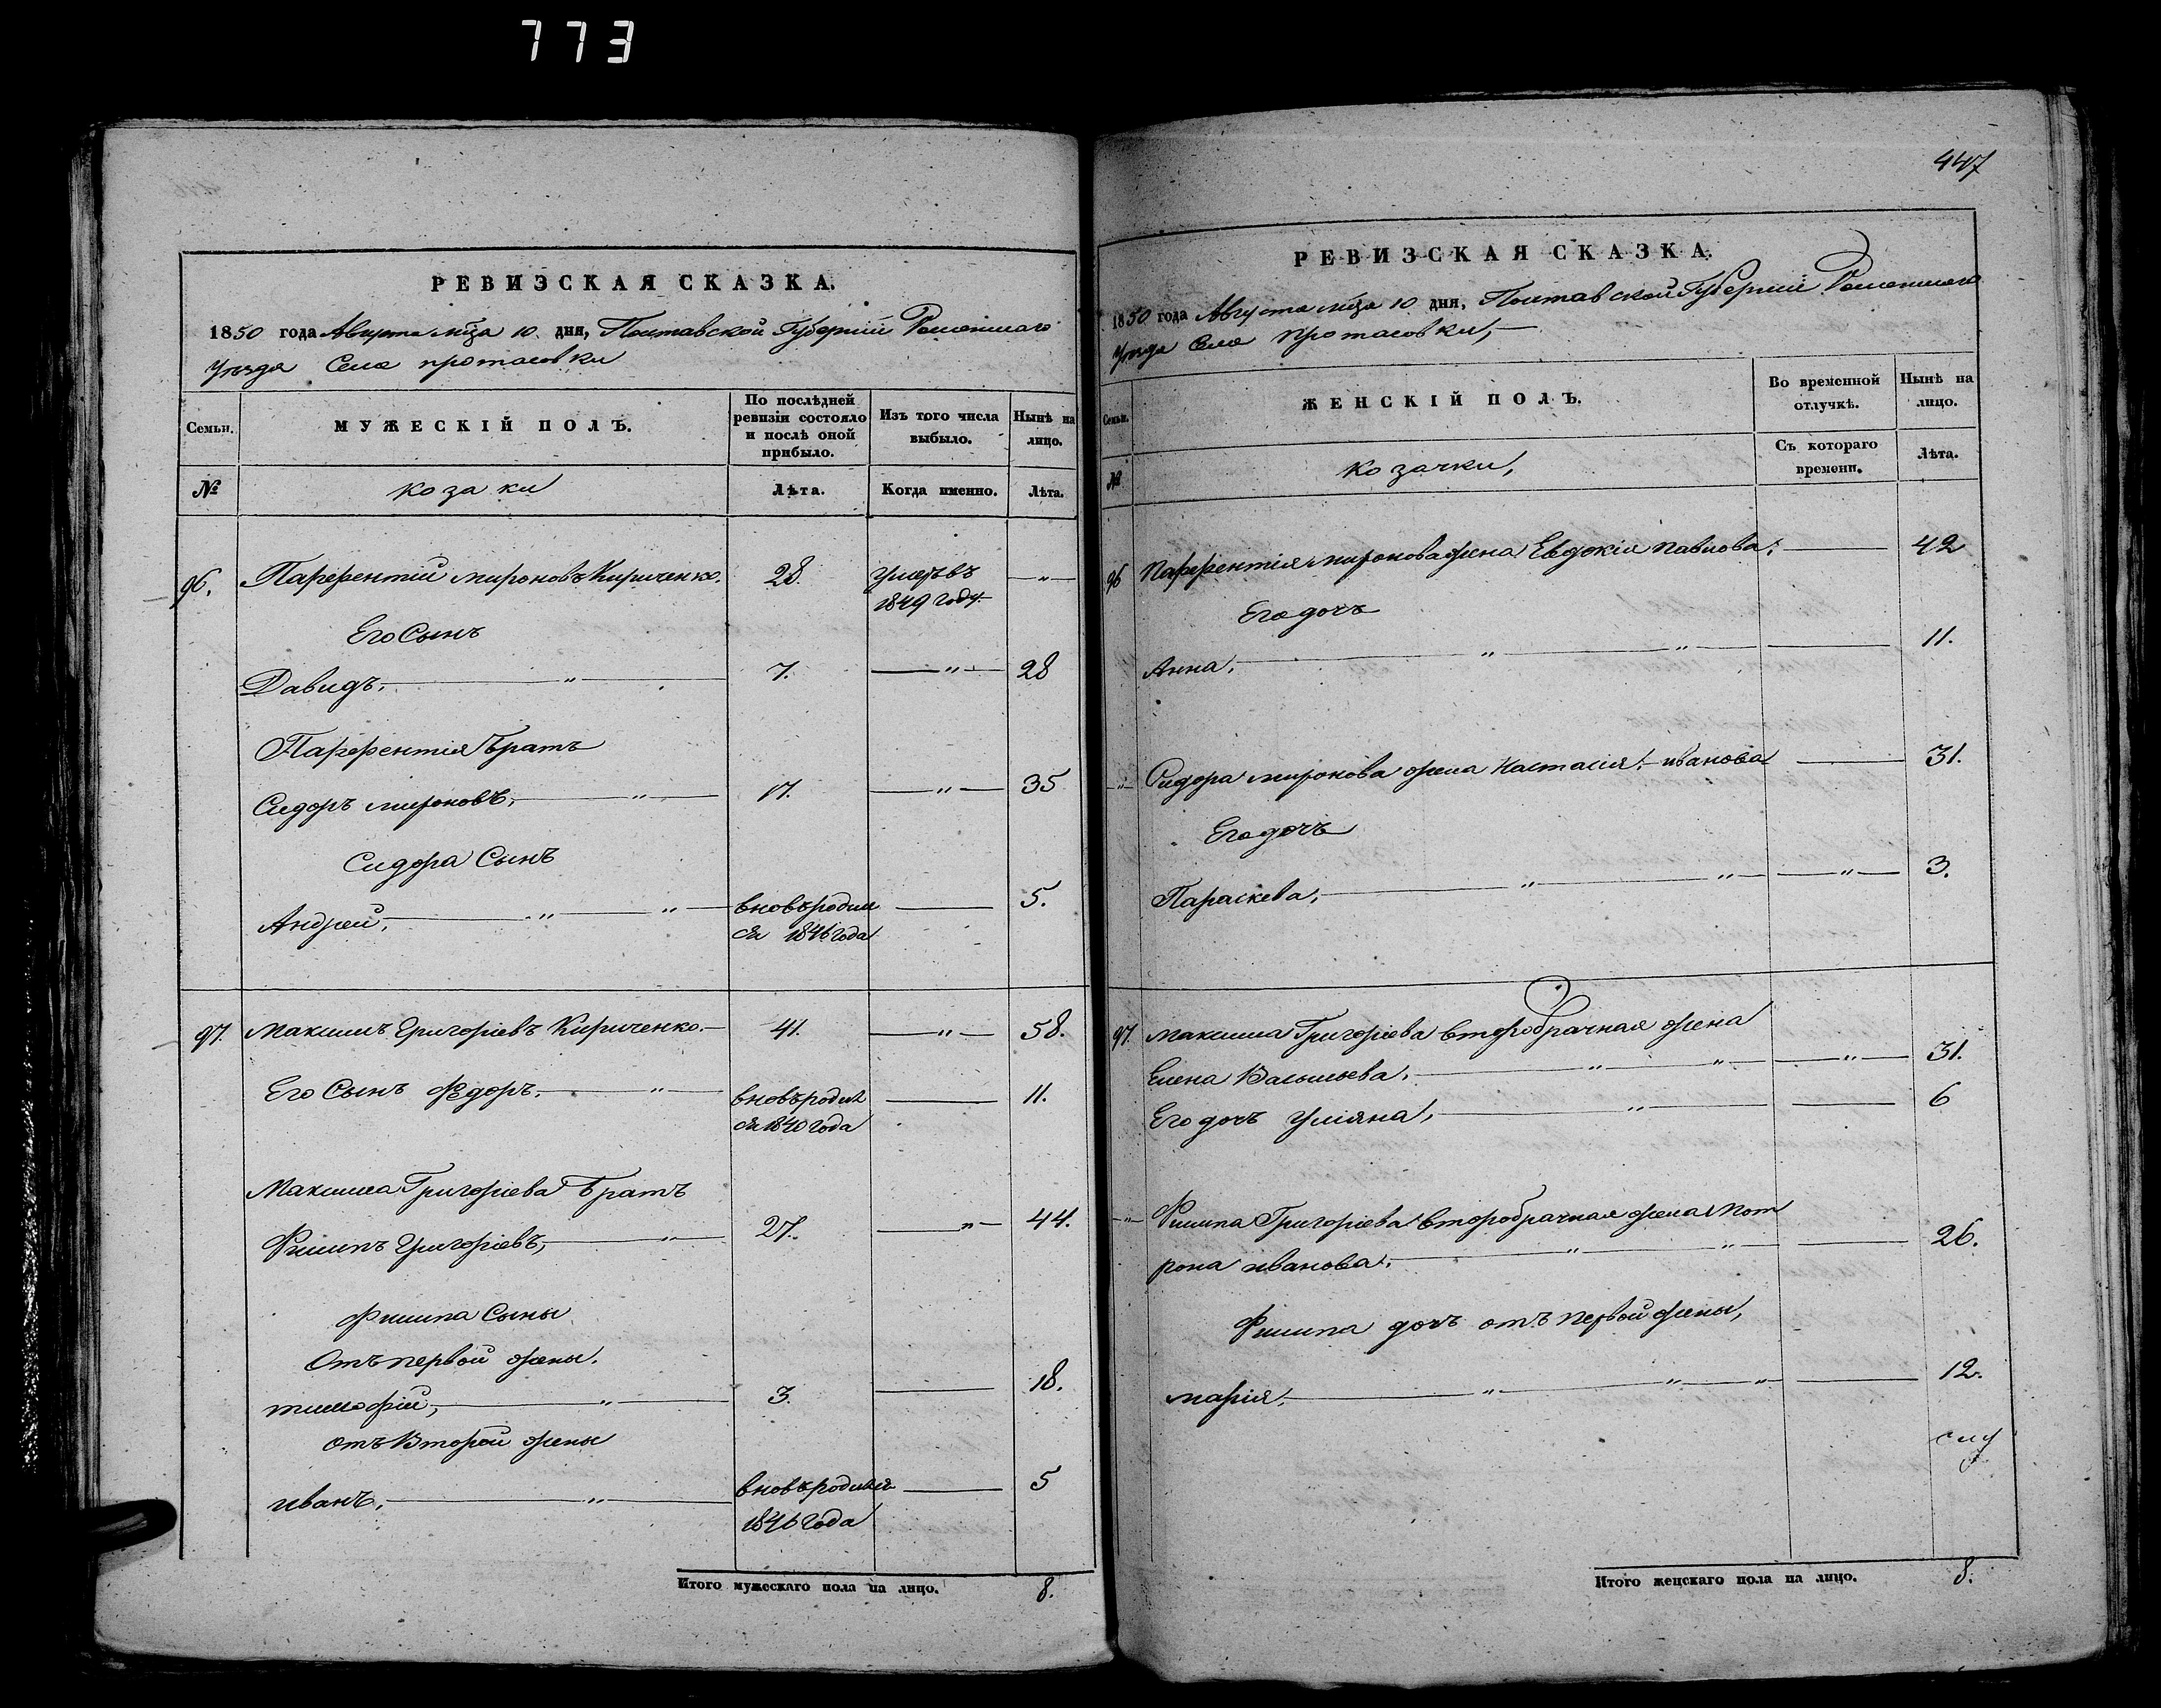 773
РЕВИЗСКАЯ СКАЗКА.
1850 года Августа мца 10. дня, Полтавской Губерніи Роменского
уезда Села протасовки
Семьи.
МУЖЕСКІЙ ПОЛЪ.
По послѣдней ревизіи состояло и послѣ оной прибыло.
Изъ того числа выбыло.
Нынѣ на лицо.
№
козаки
Лѣта.
Когда именно.
Лѣта.
96. Парфентій мироновъ Кириченко. 28. умеръ въ — " —
1849 году.
Его Сынъ
Давидъ. — " — 7. — " — 28
Парфентія братъ
Сидоръ мироновъ. — " — 17. — " — 35
Сидора Сынъ
Андрей. — " — " — вновь родил — 5.
ся 1846 года
97. Максимъ Григоріевъ Кириченко. — 41. — " — 58.
Его Сынъ Федоръ. — " — вновь родил — 11.
ся 1840 года
Максима Григоріева братъ
Филипъ Григоріевъ, — " — 27. — " — 44.
Филипа Сыны
Отъ первой жены.
тимофій, — " — 3. — 18.
отъ Второй жены
иванъ. — " — вновь родился — 5
1846 года
Итого мужескаго пола на лицо. 8.
447
РЕВИЗСКАЯ СКАЗКА.
1850 года Августа мца 10 дня, Полтавской Губерніи Роменского
уезда Села протасовки, —
Семьи.
ЖЕНСКІЙ ПОЛЪ.
Во временной отлучкѣ.
Нынѣ на лицо.
Съ котораго времени.
Лѣта.
№
козачки,
96 Парфентія миронова жена Евдокія павлова. — 42
Его дочъ
Анна. — " — " — 11.
— " — Сидора миронова жена Настасія. иванова — 31.
Его дочъ
Параскева. — " — " — " — 3.
97. максима Григоріева второбрачная жена
Елена Васильева. — " — " — " — 31.
Его дочъ Уліяна, — " — 6
— " — Филипа Григоріева второбрачная жена Мот
рона иванова. — " — " — 26.
Филипа дочъ отъ первой жены,
марія. — " — " — " — 12.
Итого женскаго пола на лицо. 8.